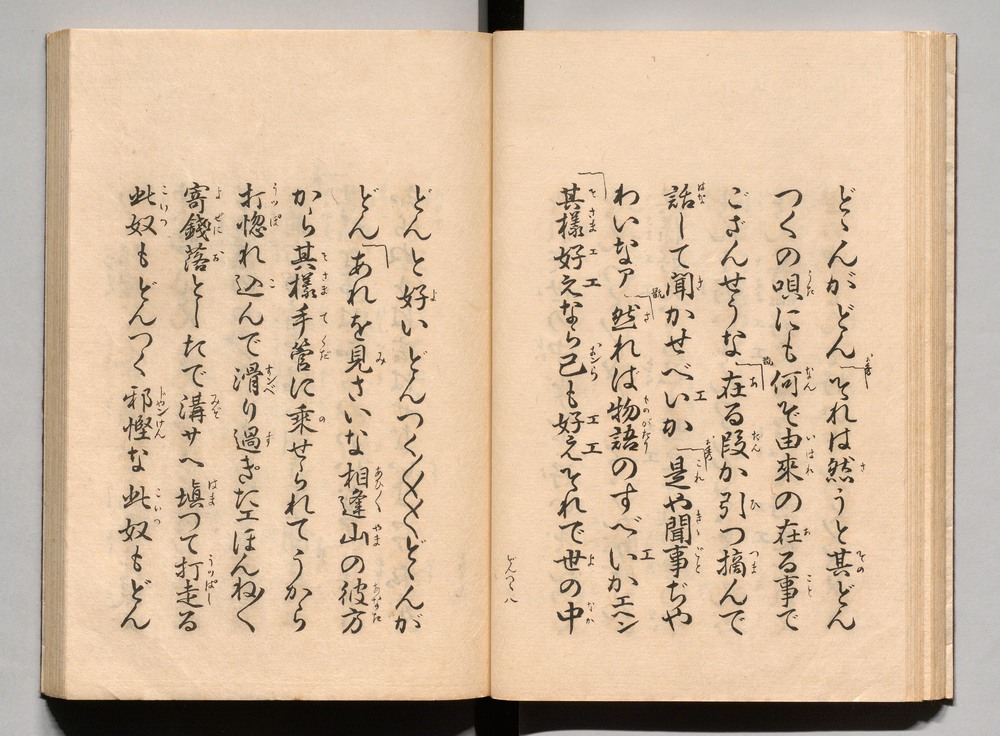 どゝんがどん それは然うと其どん
つくの唄にも何ぞ由来の在る事で
ござんせうな 在る段か引つ摘んで
話して聞かせべいか 是や聞事ぢや
わいなア 然れは物語のすべいかエヘン
其様好えなら己も好えそれで世の中
どんつく 八
どんと好いどんつく〳〵〳〵どんが
どん あれを見さいな相逢山の彼方
から其様手管に乗せられてうから
打惚れ込んで滑り過ぎたエほんねんく
寄錢落としたで溝サへ填つて打走る
此奴もどんつく邪慳な此奴もどん